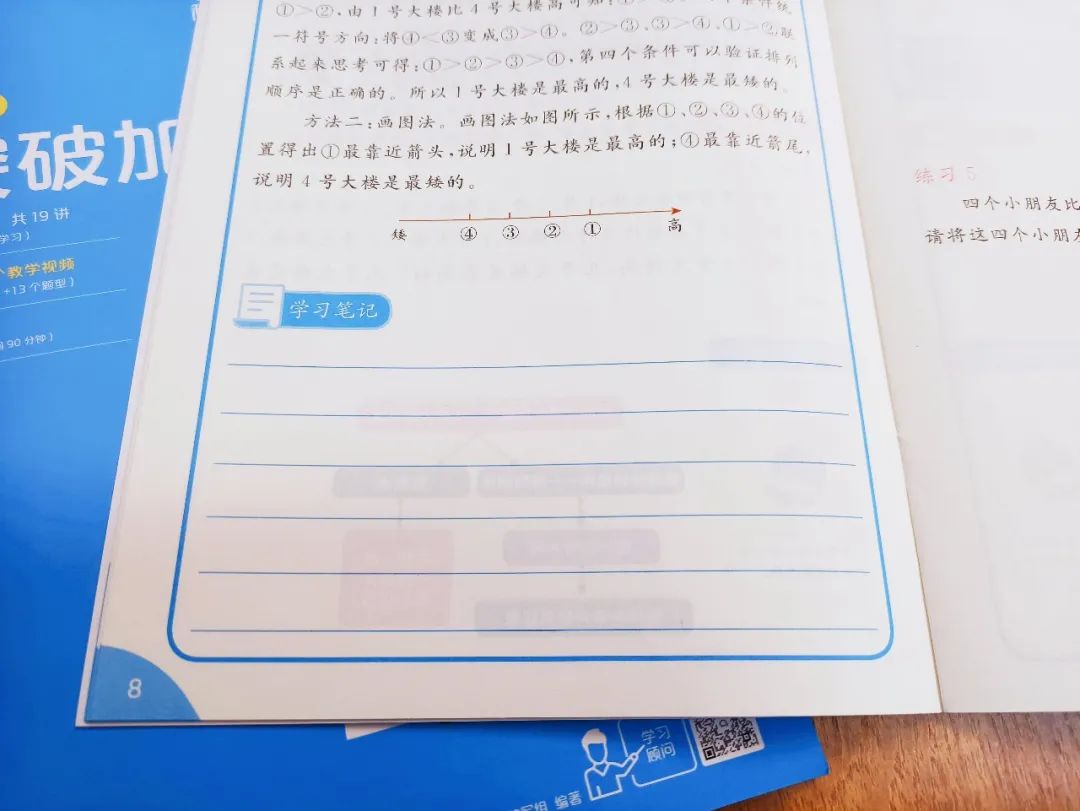 ①>②,由1号大楼比4号大楼高可知:
一符号方向:将④<③变成③>④。②>③、③>④、①>②,联
系起来思考可得:①>②>③>④,第四个条件可以验证排列
顺序是正确的。所以1号大楼是最高的,4号大楼是最矮的。
方法二:画图法。画图法如图所示,根据①、②、③、④的位
置得出①最靠近箭头,说明1号大楼是最高的;④最靠近箭尾,
说明4号大楼是最矮的。
矮 ④ ③ ② ① 高
学习笔记
8
练习5
四个小朋友比
请将这四个小朋友
破加
共19讲
学习)
个教学视频
+13个题型)
90分钟)
学习
顾问
组 编著